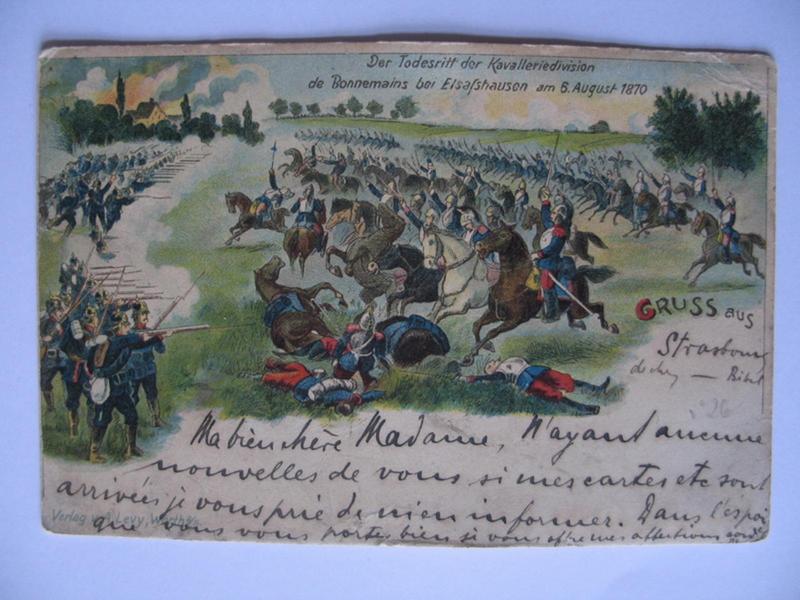 Der Todesritt der Kavalleriedivision
de Bonnemains bei Elsaſshausen am 6. August 1870
GRUSS aus
Strasbourg
26
Ma bien chère Madame, N'ayant aucune
nouvelles de vous si mes cartes etc sont
arrivées je vous prie de m'en informer. Dans l'espoi
que vous vous portez bien je vous offre mes affections
Verlag v. Levy, Wörth